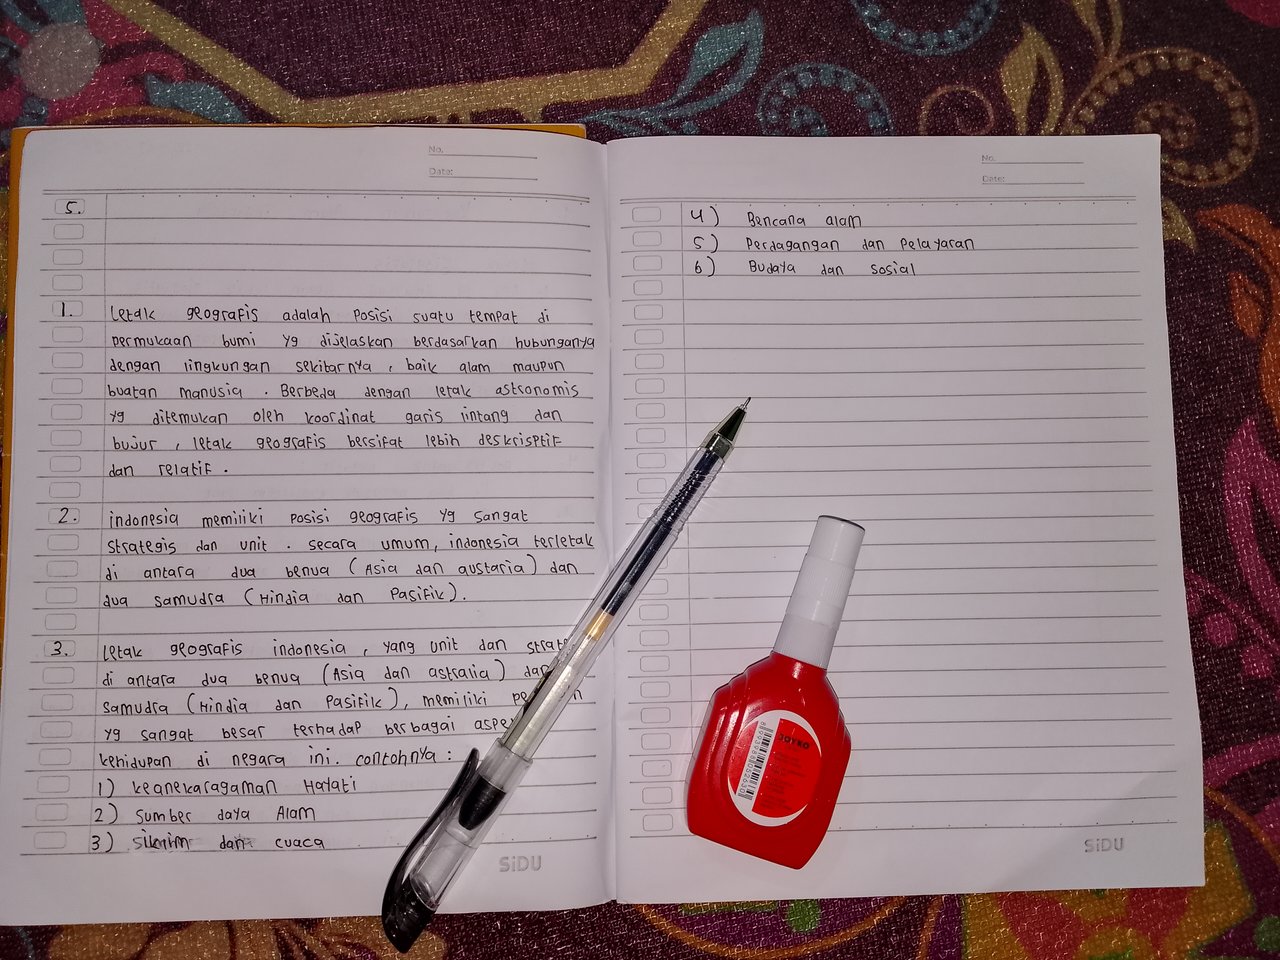 No.
Date:
5.
1. Letak geografis adalah posisi suatu tempat di
permukaan bumi yg dijelaskan berdasarkan hubunganya
dengan lingkungan sekitarnya, baik alam maupun
buatan manusia. Berbeda dengan letak astronomis
yg ditemukan oleh koordinat garis lintang dan
bujur, letak geografis bersifat lebih deskrisptif
dan relatif.
2. indonesia memiliki posisi geografis yg sangat
strategis dan unit. secara umum, indonesia terletak
di antara dua benua (Asia dan austaria) dan
dua samudra (Hindia dan Pasifik).
3. Letak geografis indonesia, yang unit dan
di antara dua benua (Asia dan astralia)
samudra (Hindia dan Pasifilk), memiliki
yg sangat besar terhadap berbagai
kehidupan di negara ini. contohnya:
1) keanekaragaman Hayati
2) Sumber daya Alam
3) dan cuaca
SiDU
No.
Date:
4) Bencana alam
5) Perdagangan dan Pelayaran
6) Budaya dan sosial
JOYKO
SiDU